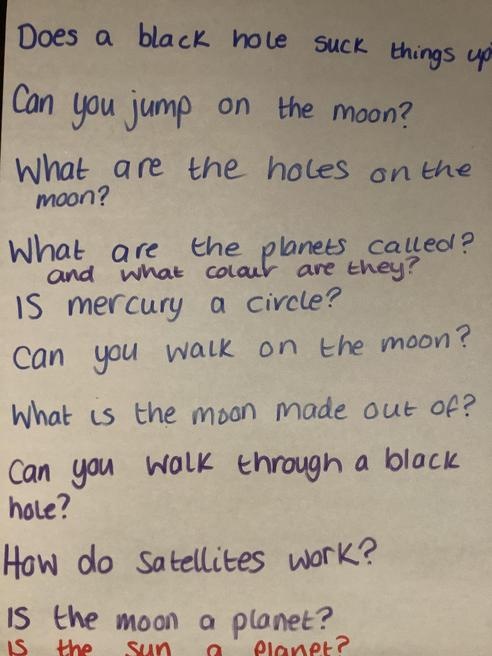 Does a black hole suck things up
Can you jump on the moon?
What are the holes on the
moon?
What are the planets called?
and what colour are they?
IS mercury a circle?
Can you walk on the moon?
What is the moon made out of?
Can you walk through a black
hole?
How do satellites work?
IS the moon a planet?
IS the sun a planet?